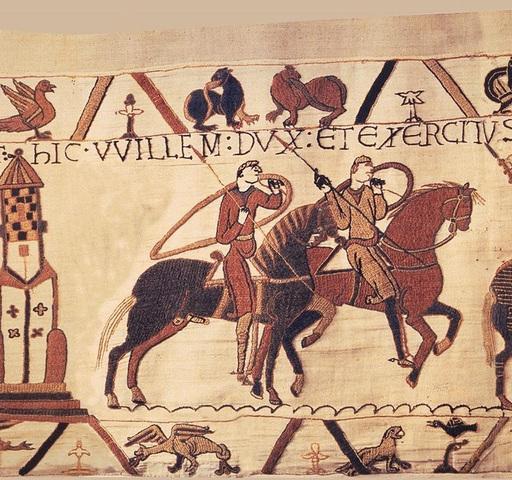 : hIC · VVILLEM : DVX : ET EXERCITVS